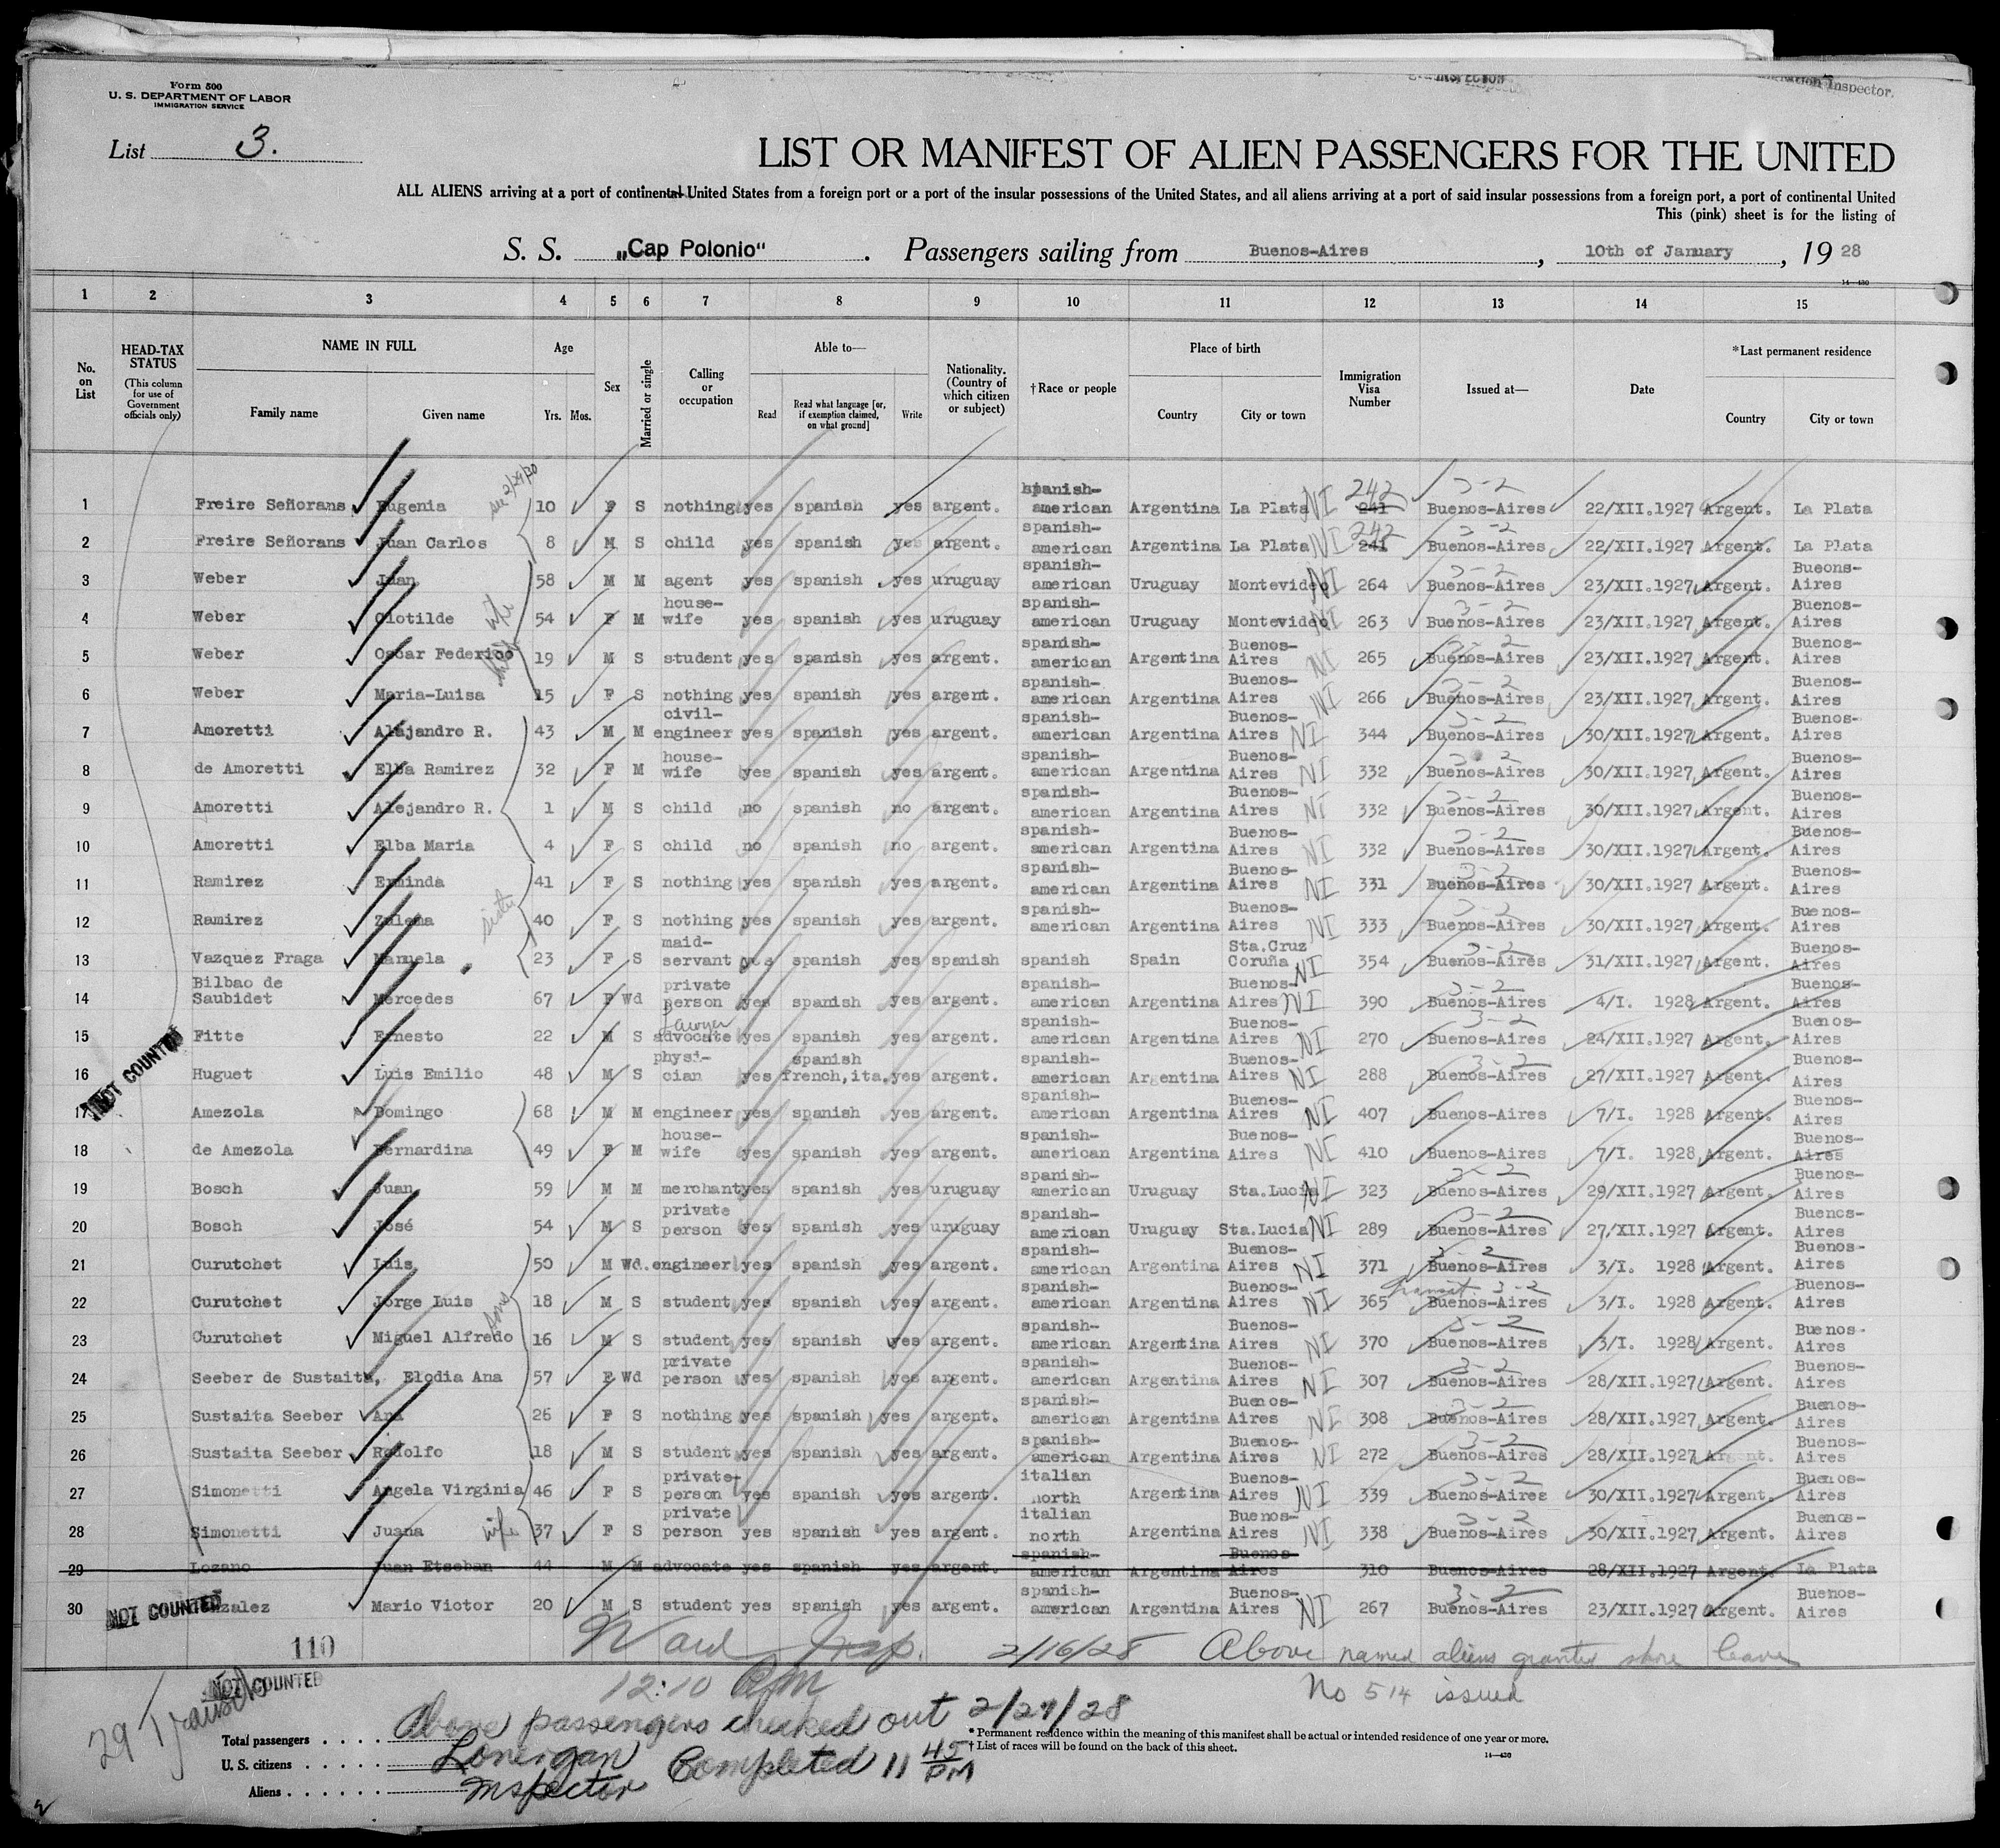 INSPECTOR
Immigration Inspector.
Form 500
U. S. DEPARTMENT OF LABOR
IMMIGRATION SERVICE
List 3.
LIST OR MANIFEST OF ALIEN PASSENGERS FOR THE UNITED
ALL ALIENS arriving at a port of continental United States from a foreign port or a port of the insular possessions of the United States, and all aliens arriving at a port of said insular possessions from a foreign port, a port of continental United
This (pink) sheet is for the listing of
S. S. „Cap Polonio“ . Passengers sailing from Buenos-Aires , 10th of January , 19 28
14—430
1 2 3 4 5 6 7 8 9 10 11 12 13 14 15
No. on List HEAD-TAX STATUS (This column for use of Government officials only) NAME IN FULL Family name Given name Age Yrs. Mos. Sex Married or single Calling or occupation Able to— Read Read what language [or, if exemption claimed, on what ground] Write Nationality. (Country of which citizen or subject) †Race or people Place of birth Country City or town Immigration Visa Number Issued at— Date *Last permanent residence Country City or town
1 Freire Señorans Eugenia see 2/29/20 10 F S nothing yes spanish yes argent. spanish-american Argentina La Plata NI 242 241 3-2 Buenos-Aires 22/XII.1927 Argent. La Plata
2 Freire Señorans Juan Carlos 8 M S child yes spanish yes argent. spanish-american Argentina La Plata NI 242 241 3-2 Buenos-Aires 22/XII.1927 Argent. La Plata
3 Weber Juan 58 M M agent yes spanish yes uruguay spanish-american Uruguay Montevideo NI 264 3-2 Buenos-Aires 23/XII.1927 Argent. Bueons-Aires
4 Weber Clotilde wife 54 F M house-wife yes spanish yes uruguay spanish-american Uruguay Montevideo NI 263 3-2 Buenos-Aires 23/XII.1927 Argent. Buenos-Aires
5 Weber Oscar Federico 19 M S student yes spanish yes argent. spanish-american Argentina Buenos-Aires NI 265 3-2 Buenos-Aires 23/XII.1927 Argent. Buenos-Aires
6 Weber Maria-Luisa 15 F S nothing yes spanish yes argent. spanish-american Argentina Buenos-Aires NI 266 3-2 Buenos-Aires 23/XII.1927 Argent. Buenos-Aires
7 Amoretti Alejandro R. 43 M M civil-engineer yes spanish yes argent. spanish-american Argentina Buenos-Aires NI 344 3-2 Buenos-Aires 30/XII.1927 Argent. Buenos-Aires
8 de Amoretti Elba Ramirez 32 F M house-wife yes spanish yes argent. spanish-american Argentina Buenos-Aires NI 332 3-2 Buenos-Aires 30/XII.1927 Argent. Buenos-Aires
9 Amoretti Alejandro R. 1 M S child no spanish no argent. spanish-american Argentina Buenos-Aires NI 332 3-2 Buenos-Aires 30/XII.1927 Argent. Buenos-Aires
10 Amoretti Elba Maria 4 F S child no spanish no argent. spanish-american Argentina Buenos-Aires NI 332 3-2 Buenos-Aires 30/XII.1927 Argent. Buenos-Aires
11 Ramirez Erminda 41 F S nothing yes spanish yes argent. spanish-american Argentina Buenos-Aires NI 331 3-2 Buenos-Aires 30/XII.1927 Argent. Buenos-Aires
12 Ramirez Zulema sister 40 F S nothing yes spanish yes argent. spanish-american Argentina Buenos-Aires NI 333 3-2 Buenos-Aires 30/XII.1927 Argent. Buenos-Aires
13 Vazquez Fraga Manuela 23 F S maid-servant yes spanish yes spanish spanish Spain Sta.Cruz Coruña NI 354 3-2 Buenos-Aires 31/XII.1927 Argent. Buenos-Aires
14 Bilbao de Saubidet Mercedes 67 F Wd private person yes spanish yes argent. spanish-american Argentina Buenos-Aires NI 390 3-2 Buenos-Aires 4/I. 1928 Argent. Buenos-Aires
15 Fitte Ernesto 22 M S Lawyer advocate yes spanish yes argent. spanish-american Argentina Buenos-Aires NI 270 3-2 Buenos-Aires 24/XII.1927 Argent. Buenos-Aires
NOT COUNTED
16 Huguet Luis Emilio 48 M S physi-cian yes spanish french,ita. yes argent. spanish-american Argentina Buenos-Aires NI 288 3-2 Buenos-Aires 27/XII.1927 Argent. Buenos-Aires
17 Amezola Domingo 68 M M engineer yes spanish yes argent. spanish-american Argentina Buenos-Aires NI 407 Buenos-Aires 7/I. 1928 Argent. Buenos-Aires
18 de Amezola Bernardina 49 F M house-wife yes spanish yes argent. spanish-american Argentina Buenos-Aires NI 410 Buenos-Aires 7/I. 1928 Argent. Buenos-Aires
19 Bosch Juan 59 M M merchant yes spanish yes uruguay spanish-american Uruguay Sta.Lucia NI 323 3-2 Buenos-Aires 29/XII.1927 Argent. Buenos-Aires
20 Bosch José 54 M S private person yes spanish yes uruguay spanish-american Uruguay Sta.Lucia NI 289 3-2 Buenos-Aires 27/XII.1927 Argent. Buenos-Aires
21 Curutchet Luis 50 M Wd. engineer yes spanish yes argent. spanish-american Argentina Buenos-Aires NI 371 3-2 Buenos-Aires 3/I. 1928 Argent. Buenos-Aires
22 Curutchet Jorge Luis sons 18 M S student yes spanish yes argent. spanish-american Argentina Buenos-Aires NI 365 transit 3-2 Buenos-Aires 3/I. 1928 Argent. Buenos-Aires
23 Curutchet Miguel Alfredo 16 M S student yes spanish yes argent. spanish-american Argentina Buenos-Aires NI 370 3-2 Buenos-Aires 3/I. 1928 Argent. Buenos-Aires
24 Seeber de Sustaita, Elodia Ana 57 F Wd private person yes spanish yes argent. spanish-american Argentina Buenos-Aires NI 307 3-2 Buenos-Aires 28/XII.1927 Argent. Buenos-Aires
25 Sustaita Seeber Ana 26 F S nothing yes spanish yes argent. spanish-american Argentina Buenos-Aires NI 308 3-2 Buenos-Aires 28/XII.1927 Argent. Buenos-Aires
26 Sustaita Seeber Rodolfo 18 M S student yes spanish yes argent. spanish-american Argentina Buenos-Aires NI 272 3-2 Buenos-Aires 28/XII.1927 Argent. Buenos-Aires
27 Simonetti Angela Virginia 46 F S private-person yes spanish yes argent. italian north Argentina Buenos-Aires NI 339 3-2 Buenos-Aires 30/XII.1927 Argent. Buenos-Aires
28 Simonetti Juana wife 37 F S private person yes spanish yes argent. italian north Argentina Buenos-Aires NI 338 3-2 Buenos-Aires 30/XII.1927 Argent. Buenos-Aires
29 Lozano Juan Etseban 44 M M advocate yes spanish yes argent. spanish-american Argentina Buenos-Aires 310 Buenos-Aires 28/XII.1927 Argent. La Plata
30 NOT COUNTED Gonzalez Mario Victor 20 M S student yes spanish yes argent. spanish-american Argentina Buenos-Aires NI 267 3-2 Buenos-Aires 23/XII.1927 Argent. Buenos-Aires
110 Ward Insp. 2/16/28 Above named aliens granted shore leave
NOT COUNTED 12:10 PM No 514 issued
29 Transit
Above passengers checked out 2/29/28
Total passengers
* Permanent residence within the meaning of this manifest shall be actual or intended residence of one year or more.
† List of races will be found on the back of this sheet.
14—430
U. S. citizens Lonergan Completed 11 45 PM
Aliens Inspector